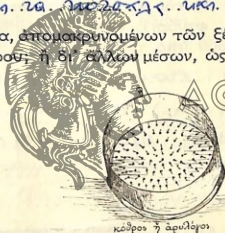 α, ἀπομακρυνομένων τῶν ξέ
ρου; ἢ δι' ἄλλων μέσων, ὡς
κόθρος ἢ ἀρυλόγος